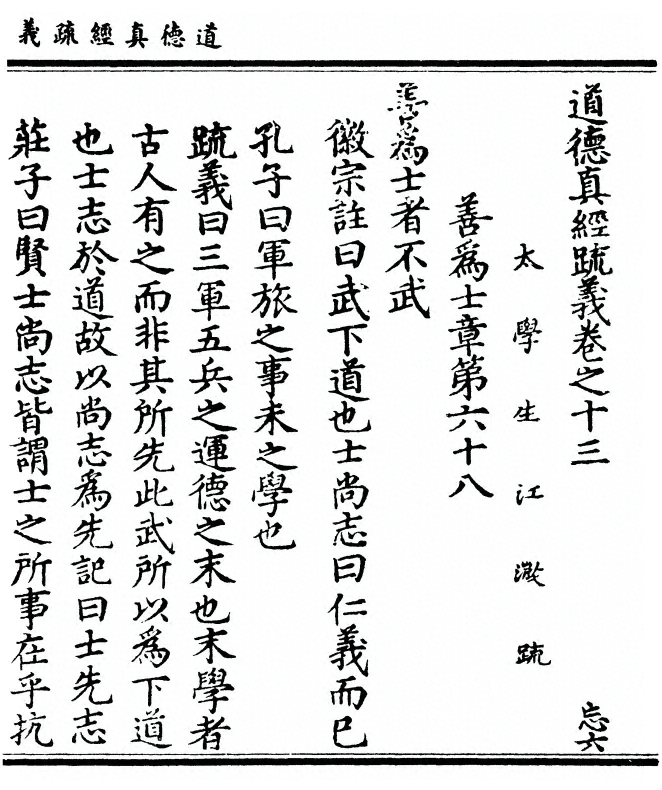 道德真經疏義
道德真經疏義卷之十三
忘六
太學生江澂疏
善爲士章第六十八
善爲士者不武
徽宗註曰武下道也士尚志曰仁義而已
孔子曰軍旅之事未之學也
疏義曰三軍五兵之運德之末也末學者
古人有之而非其所先此武所以爲下道
也士志於道故以尚志爲先記曰士先志
莊子曰賢士尚志皆謂士之所事在乎抗